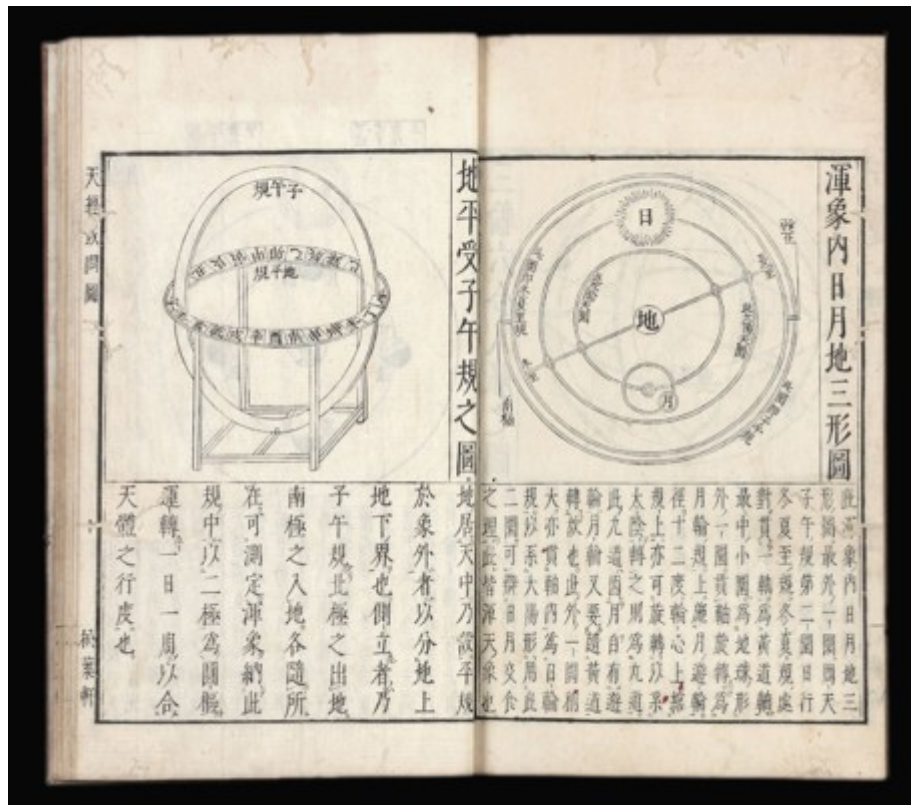 渾象內日月地三形圖
日
地
月
此渾象內日月地三
形圖最外一圈周天
子午規第二圈日行
冬夏至規冬夏規處
對貫一軸爲黃道軸
最中小圈爲地球形
外一圈貫軸旋轉爲
月輪規上應月遊輪
徑十二度輪心上
規上亦可旋轉以系
太陰轉之則爲九道
此九道因月自有遊
輪月軸又要隨黃道
轉故也 外一圈稍
大亦貫軸內爲日輪
規以系太陽形 此
二圈可辨日月交食
之理此皆渾天象也
地平受子午規之圖
規午子
規平地
地居天中乃設平規
於象外者以分地上
地下界也側立者乃
子午規北極之出地
南極之入地各隨所
在可測定渾象納此
規中以二極爲圓樞
運轉一日一周以合
天體之行度也
天經或問圖
松葉軒